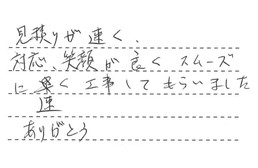 見積りが速く、
対応、笑顔が良くスムーズ
に早く工事してもらいました
速
ありがとう